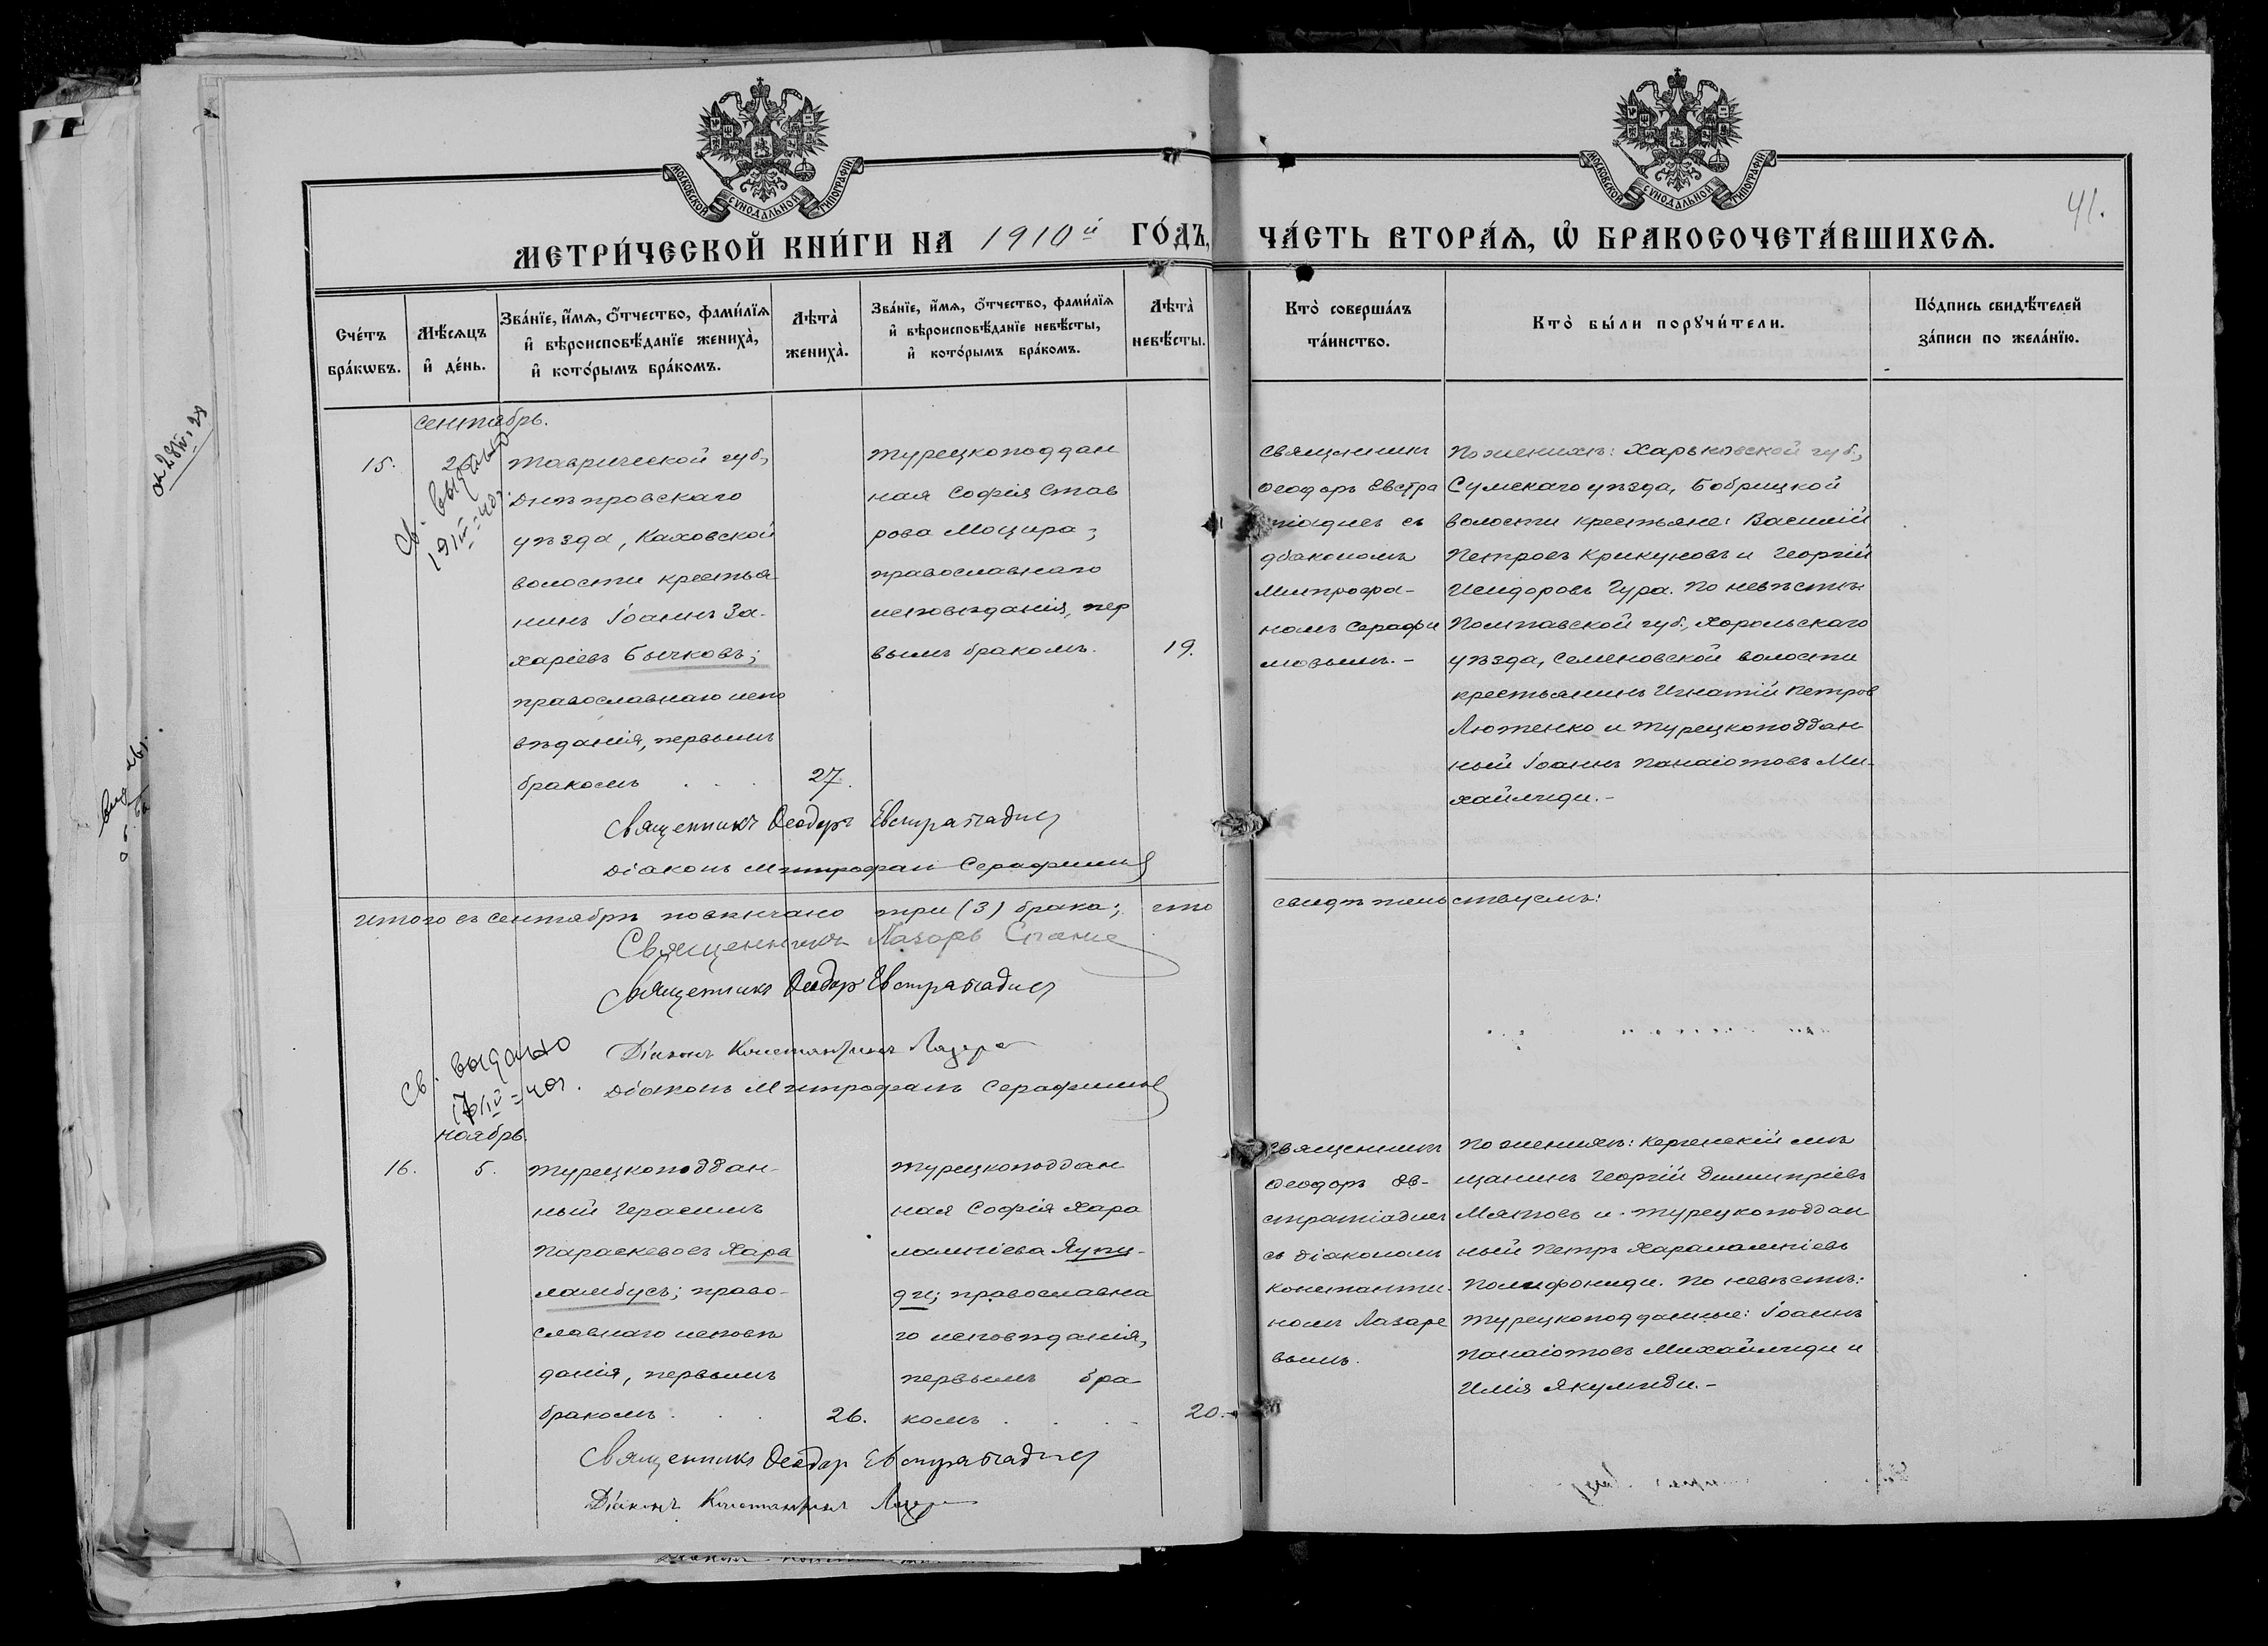 МОСКОВСКОЙ СѴНОДАЛЬНОЙ ТИПОГРАФІИ
МОСКОВСКОЙ СѴНОДАЛЬНОЙ ТИПОГРАФІИ
41.
МЕТРИ́ЧЕСКОЙ КНИ́ГИ НА 1910й ГО́ДЪ,
ЧА́СТЬ ВТОРА́Ѧ, Ѡ҆ БРАКОСОЧЕТА́ВШИХСѦ.
Сче́тъ
бра́кѡвъ.
Мѣ́сѧцъ
и҆ де́нь.
Зва́нїе, и҆́мѧ, ѻ҆́тчество, фами́лїѧ
и҆ вѣроисповѣ́данїе жениха̀,
и҆ кото́рымъ бра́комъ.
Лѣта̀
жениха̀.
Зва́нїе, и҆́мѧ, ѻ҆́тчество, фами́лїѧ
и҆ вѣроисповѣ́данїе невѣ́сты,
и҆ кото́рымъ бра́комъ.
Лѣта̀
невѣ́сты.
Кто̀ соверша́лъ
та́инство.
Кто̀ бы́ли порꙋчи́тели.
По́дпись свидѣ́телей
за́писи по жела́нїю.
сентябрь.
15.
Св. выдано
Таврической губ.,
Днѣпровскаго
уѣзда, Каховской
волости крестья
нинъ Іоаннъ За-
харіевъ Бычковъ;
православнаго испо
вѣданія, первымъ
бракомъ
27.
турецкоподдан
ная Софія Став
рова Моцира;
православнаго
исповѣданія, пер
вымъ бракомъ.
19.
священникъ
Ѳеодоръ Евстра
тіадисъ съ
діакономъ
Митрофа-
номъ Серафи
мовымъ.-
По женихѣ: Харьковской губ.,
Сумскаго уѣзда, Бобрицкой
волости крестьяне: Василій
Петровъ Крикуновъ и Георгій
Исидоровъ Гура. По невѣстѣ:
Полтавской губ., Хорольскаго
уѣзда, Семеновской волости
крестьянинъ Игнатій Петров
Лютенко и турецкоподдан
ный Іоаннъ Панаіотовъ Ми-
хайлиди.-
Священникъ Ѳеодоръ Евстратіадис
Діаконъ Митрофан Серафимов
Итого въ сентябрѣ повѣнчано три (3) брака; что
свидѣтельствуемъ:
Священникъ Лазарь
Священникъ Ѳеодор Евстратіадис
Діаконъ Константинъ Лазаре
Діаконъ Митрофанъ Серафимов
Св. выдано
ноябрь.
16.
5.
турецкоподдан-
ный Герасимъ
Параскевовъ Хара
ламбусъ; право-
славнаго исповѣ
данія, первымъ
бракомъ
26.
турецкоподдан
ная Софія Хара
лампіева Яупи-
ди; православна
го исповѣданія,
первымъ бра
комъ
20.
священникъ
Ѳеодоръ Ев-
стратіадисъ
съ діакономъ
Константи-
номъ Лазаре
вымъ.
По женихѣ: Керченскій мѣ
щанинъ Георгій Димитріевъ
Мятовъ и турецкоподдан
ный Петръ Харалампіевъ
Полифониди. По невѣстѣ:
турецкоподданные: Іоаннъ
Панаіотовъ Михайлиди и
Илія Якулиди.-
Священникъ Ѳеодор Евстратіадис
Діаконъ Константинъ Лазаре